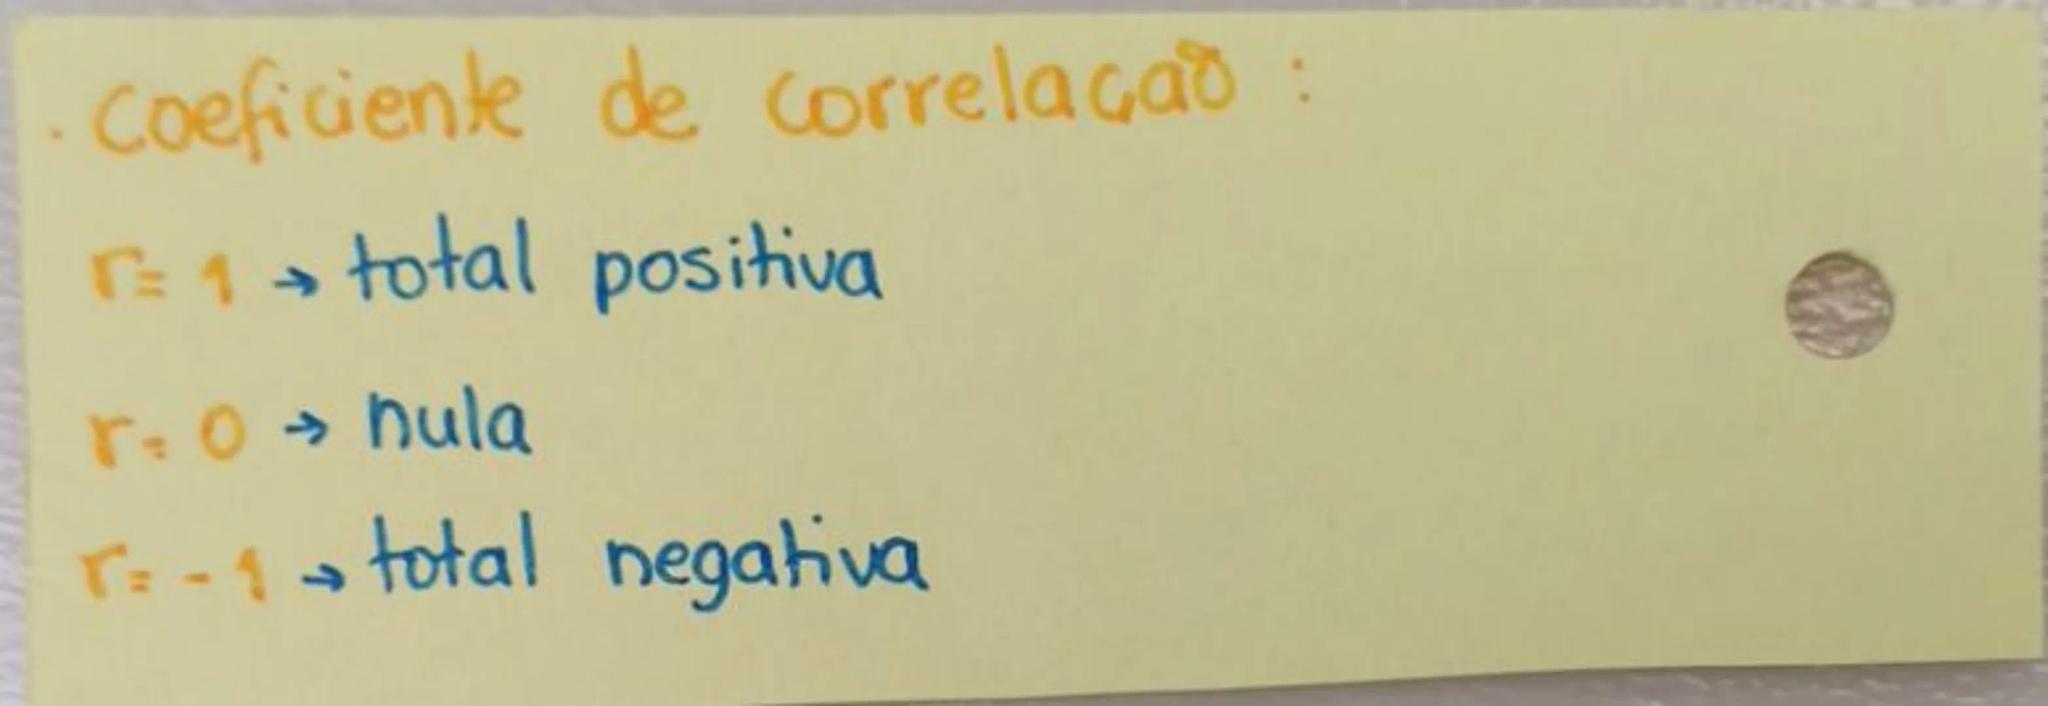 . Coeficiente de correlação :
r= 1 → total positiva
r= 0 → nula
r= - 1 → total negativa